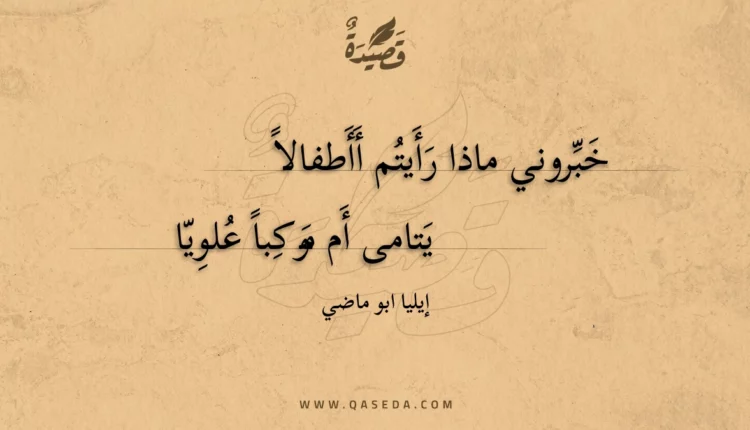 قَصِيدَةٌ
خَبِّروني ماذا رَأَيتُم أَأَطفالاً
يَتامى أَم مَوكِباً عُلوِيّا
إيليا ابو ماضي
WWW.QASEDA.COM